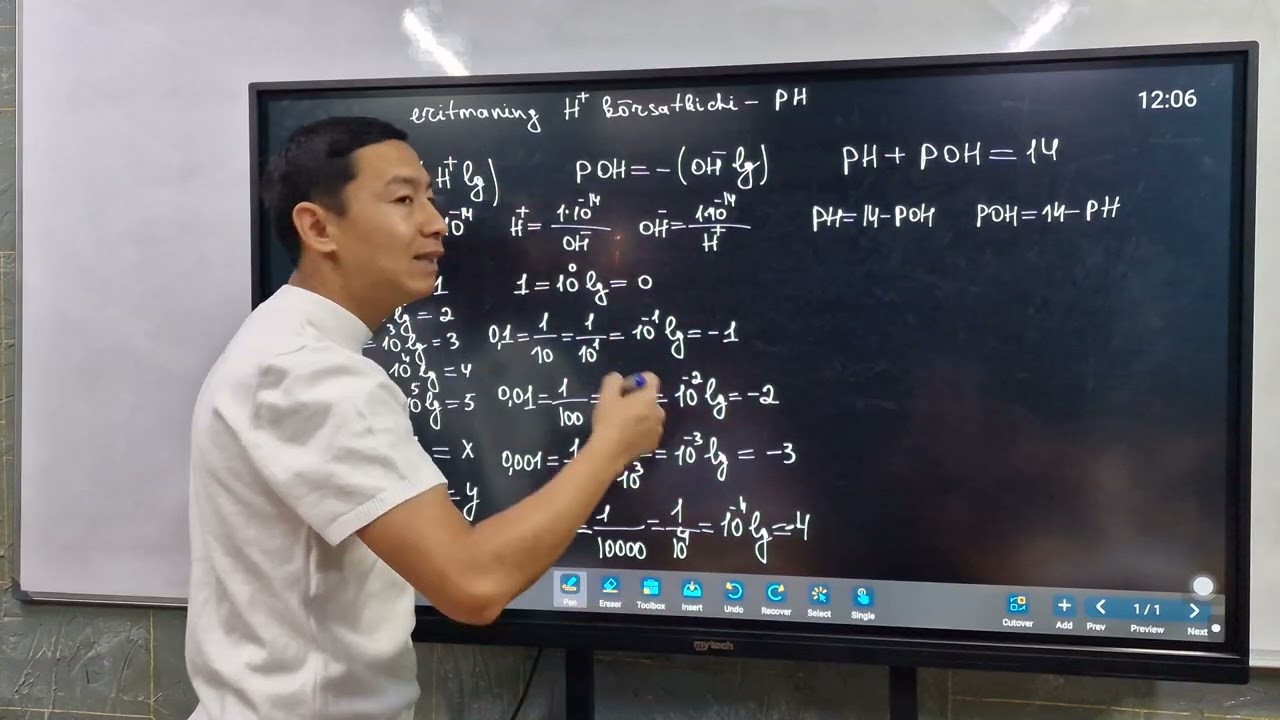 12:06
eritmaning H⁺ körsatkichi – PH
H⁺ lg) POH = –(OH⁻ lg) PH + POH = 14
10⁻¹⁴ H⁺ = 1·10⁻¹⁴/OH⁻ OH⁻ = 1·10⁻¹⁴/H⁺ PH = 14–POH POH = 14–PH
1 1 = 10⁰ lg = 0
lg = 2
= 10³ lg = 3 0,1 = 1/10 = 1/10¹ = 10⁻¹ lg = –1
10⁴ lg = 4
10⁵ lg = 5 0,01 = 1/100 = = 10⁻² lg = –2
= x 0,001 = 1 10³ = 10⁻³ lg = –3
= y
= 1/10000 = 1/10⁴ = 10⁻⁴ lg = –4
Pen Eraser Toolbox Insert Undo Recover Select Single Cutover Add Prev 1/1 Preview Next
mytech